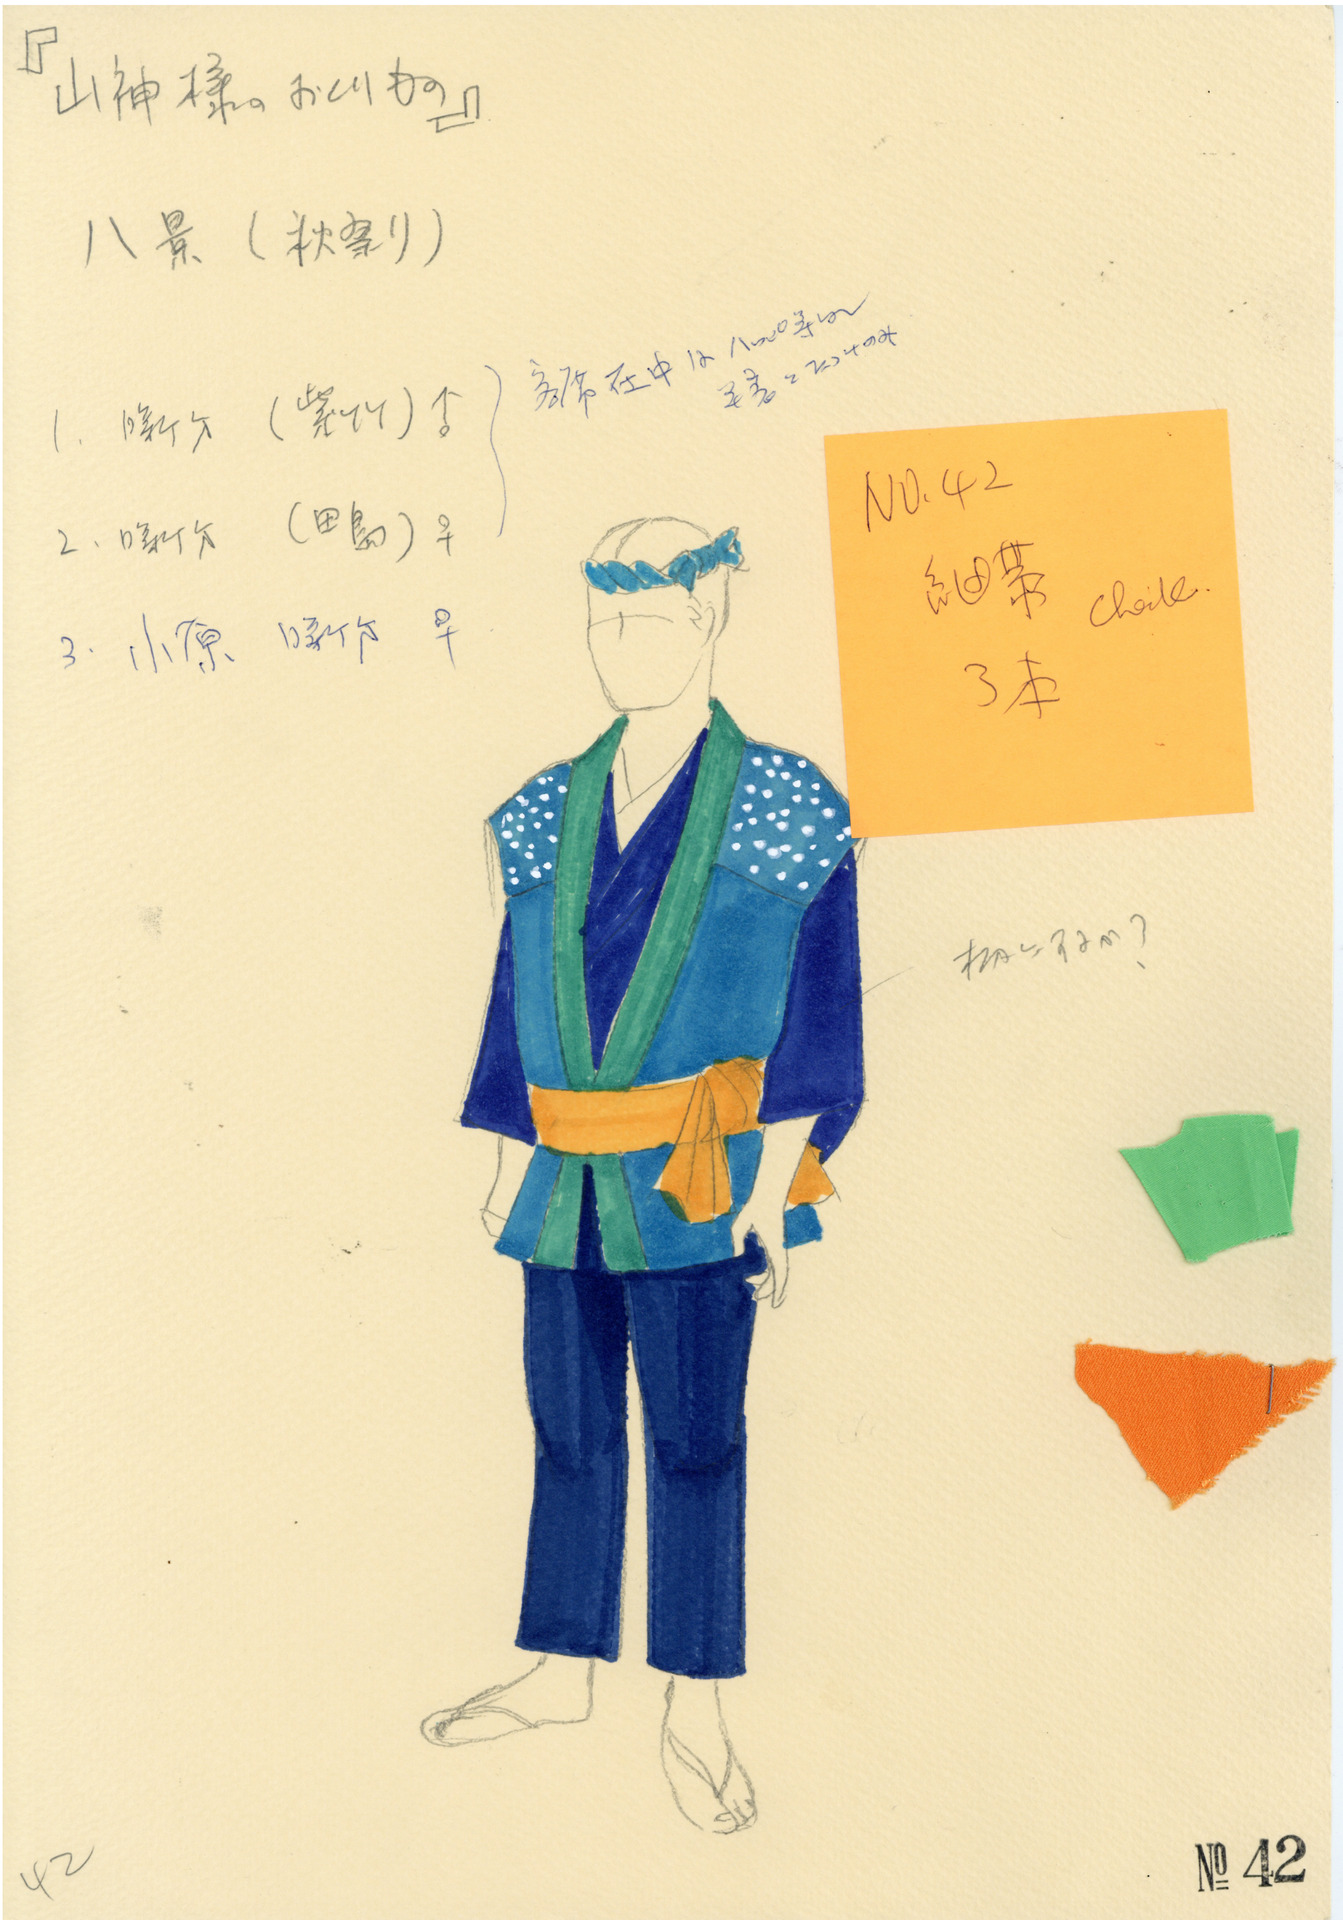 『山神様のおくりもの』
八景（秋祭り）
1. 囃子方（紫竹）♂
2. 囃子方（田島）♀
3. 小原 囃子方 ♀
客席在中は
NO.42
細帯 check.
3本
柄にするか?
42
№ 42